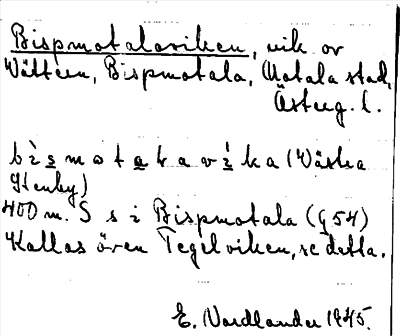 Bispmotalaviken, vik av
Vättern, Bispmotala, Motala stad,
Österg. l.
bìsmotalavíka (Västra
Stenby)
400 m. S s i Bispmotala (G 54)
Kallas även Tegelviken, se detta.
E. Nordlander 1945.